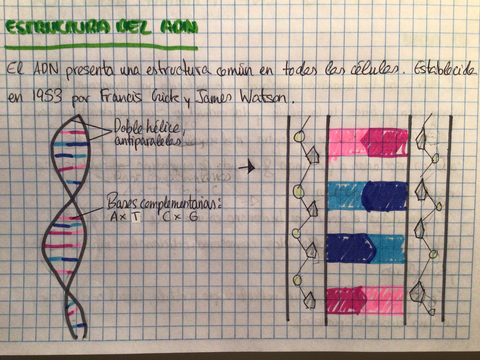 ESTRUCTURA DEL ADN
El ADN presenta una estructura común en todas las células. Establecida
en 1953 por Francis Crick y James Watson.
Doble hélice,
antiparalelas
Bases complementarias:
A x T C x G